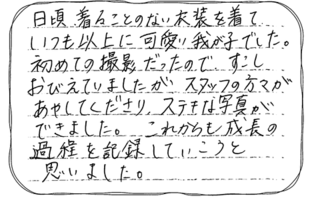 日頃、着ることのない衣装を着て
いつも以上に可愛い我が子でした。
初めての撮影だったので、すこし
おびえていましたが、スタッフの方々が
あやしてくださり、ステキな写真が
できました。これからも成長の
過程を記録していこうと
思いました。